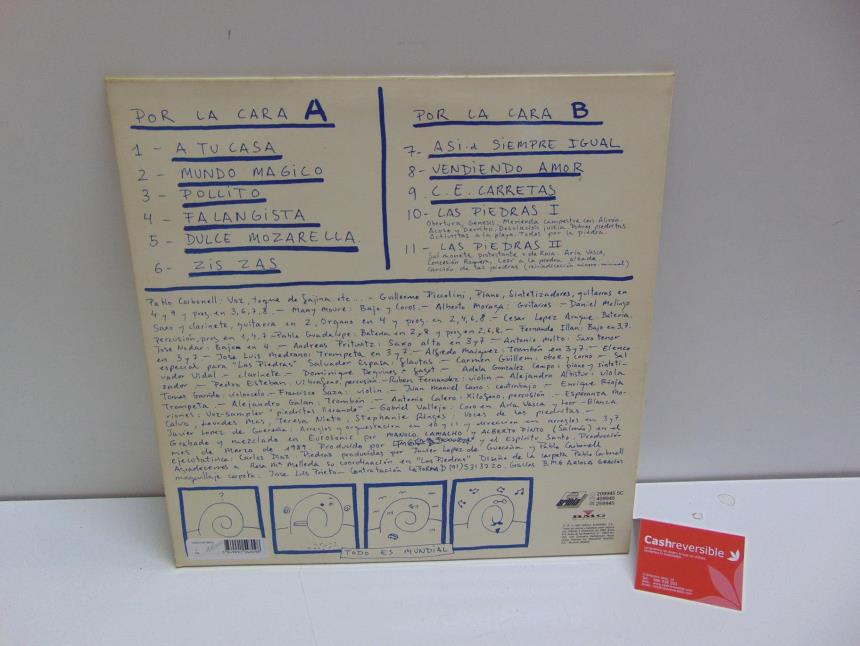 POR LA CARA A
1 - A TU CASA
2 - MUNDO MAGICO
3 - POLLITO
4 - FALANGISTA
5 - DULCE MOZARELLA
6 - ZIS ZAS
POR LA CARA B
7- ASI.d SIEMPRE IGUAL
8- VENDIENDO AMOR
9. C.E. CARRETAS
10- LAS PIEDRAS I
Obertura, Genesis, Merienda Campestre con Alirón,
Acoso y Derribo, Desolación judía, Pobres piedrecitas
Activistas a la playa. Todos por la piedra.
11- LAS PIEDRAS II
Salmonete protestante o de Roca. Aria Vasca,
Concesión Roquera, Loor a la piedra alzada,
Canción de las piedras
Pablo Carbonell: Voz, toque de gajina. etc... - Guillermo Piccolini, Piano, Sintetizadores, guitarras en
4 y 9 y pros. en 3,6,7,8. - Many Moure: Bajo y Coros. - Alberto Moraga: Guitarras - Daniel Melingo
Saxo y clarinete, guitarra en 2, Organo en 4 y pros. en 2,4,6,8 - Cesar Lopez Ansgue: Bateria,
Percusión, pros en 1,4,7 - Pablo Guadalupe: Bateria en 2,8 y pros en 2,6,8. - Fernando Illan: Bajo en 3,7.
Jose Nodar: Bajo en 4 - Andreas Prituwitz: Saxo alto en 3 y 7 - Antonio Molto: Saxo tenor
en 3 y 7 - Jose Luis Medrano: Trompeta en 3 y 7 - Alfredo Maiquez: Trombón en 3 y 7 - Elenco
especial para "Las Piedras" Salvador Espasa, flautas - Carmen Guillem: oboe y corno - Sal
vador Vidal - clarinete - Dominique Deguines - fagot - Adela Gonzalez Campo: piano y sinteti-
zador - Pedro Esteban: Vibrafono, percusión - Ruben Fernandez: violin - Alejandro Albistur: viola
Tomas Garrido: violoncelo - Francisco Saza: violin - Juan Manuel Cano: contrabajo - Enrique Rioja
Trompeta - Alejandro Galan: Trombón - Antonio Calero: Xilofono, percusión - Esperanza Mo-
riones: Voz-sampler "piedritas llorando" - Gabriel Vallejo: Coro en Aria Vasca y Loor - Blanca
Calvo, Lourdes Mas, Teresa Nieto, Stephanie Ringes: Voces de las piedritas -
Javier Lopez de Guereña: Arreglos y orquestacion en 10 y 11 y direccion en arreglos en 3 y 7.
Grabado y mezclado en Eurosonic por MANOLO CAMACHO y ALBERTO PINTO (Salmón) en el
mes de Marzo de 1989 Producido por y el Espíritu Santo, Producción
ejecutativa: Carlos Diaz. Piedras producidas por Javier Lopez de Guereña y Pablo Carbonell
Agradecemos a Rosa Mª Molleda su coordinación en "Las Piedras" Diseño de la carpeta Pablo Carbonell
maquillaje carpeta: Jose Luis Prieto - Contratación LA FORMA D (91) 5313220. Gracias B.M.G. Ariola Gracias
?
TODO ES MUNDIAL
BMG
Cashreversible